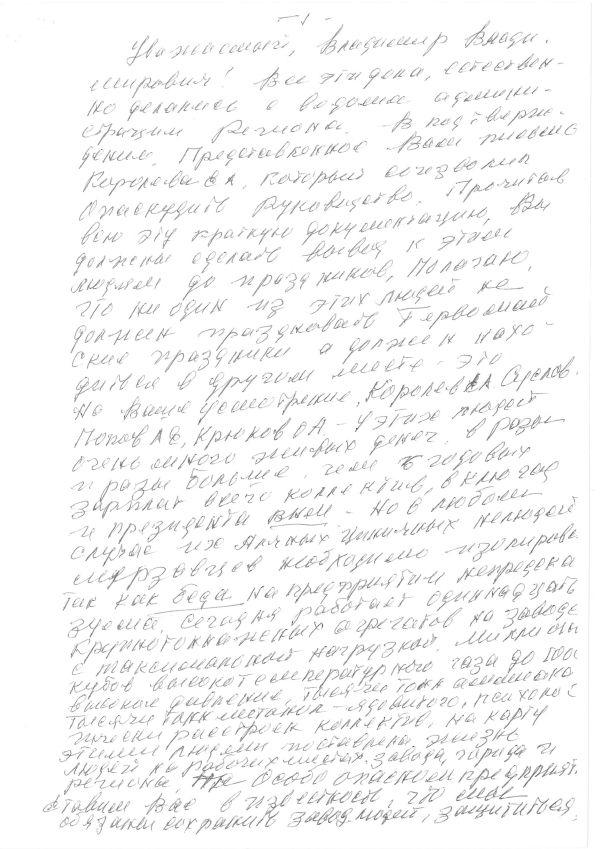 - 1 -
Уважаемый, Владимир Влади-
мирович! Все эти дела, естествен-
но делались с ведома админи-
страции Региона. В подтверж-
дении, Представленное Вам письмо
Королева СА, который соизволил
Опаскудить Руководство. Прочитав
всю эту краткую документацию, Вы
должны сделать вывод к этим
людям до праздников, Полагаю,
что ни один из этих людей не
должен праздновать Первомай
ские праздники а должен нахо-
дится в другом месте - это
на Ваше усмотрение, Королев СА
Попов АС, Крюков ОА - У этих людей
очень много живых денег, в разы
и разы больше, чем 5 годовых
зарплат всего коллектив, включая
и президента - Но в любом
случае их Алчных циничных нелюдей
мерзавцев необходимо изолирова
так как беда на предприятии непредска
зуема, сегодня работает одиннадцать
Крупнотоннажных агрегатов на заводе
с максимальной нагрузкой. Миллионы
кубов высокотемпературного газа до 1000
высокое давление, тысячи тонн аммиака
тысячи тонн метанол-ядовитого, психоло
гически расстроен коллектив, на карту
этими людьми поставлена жизнь
людей на рабочих местах, завода, города и
региона, Особо опасном предприят.
Ставим Вас в известность, что мы
обязаны сохранить завод-людей, защититься,